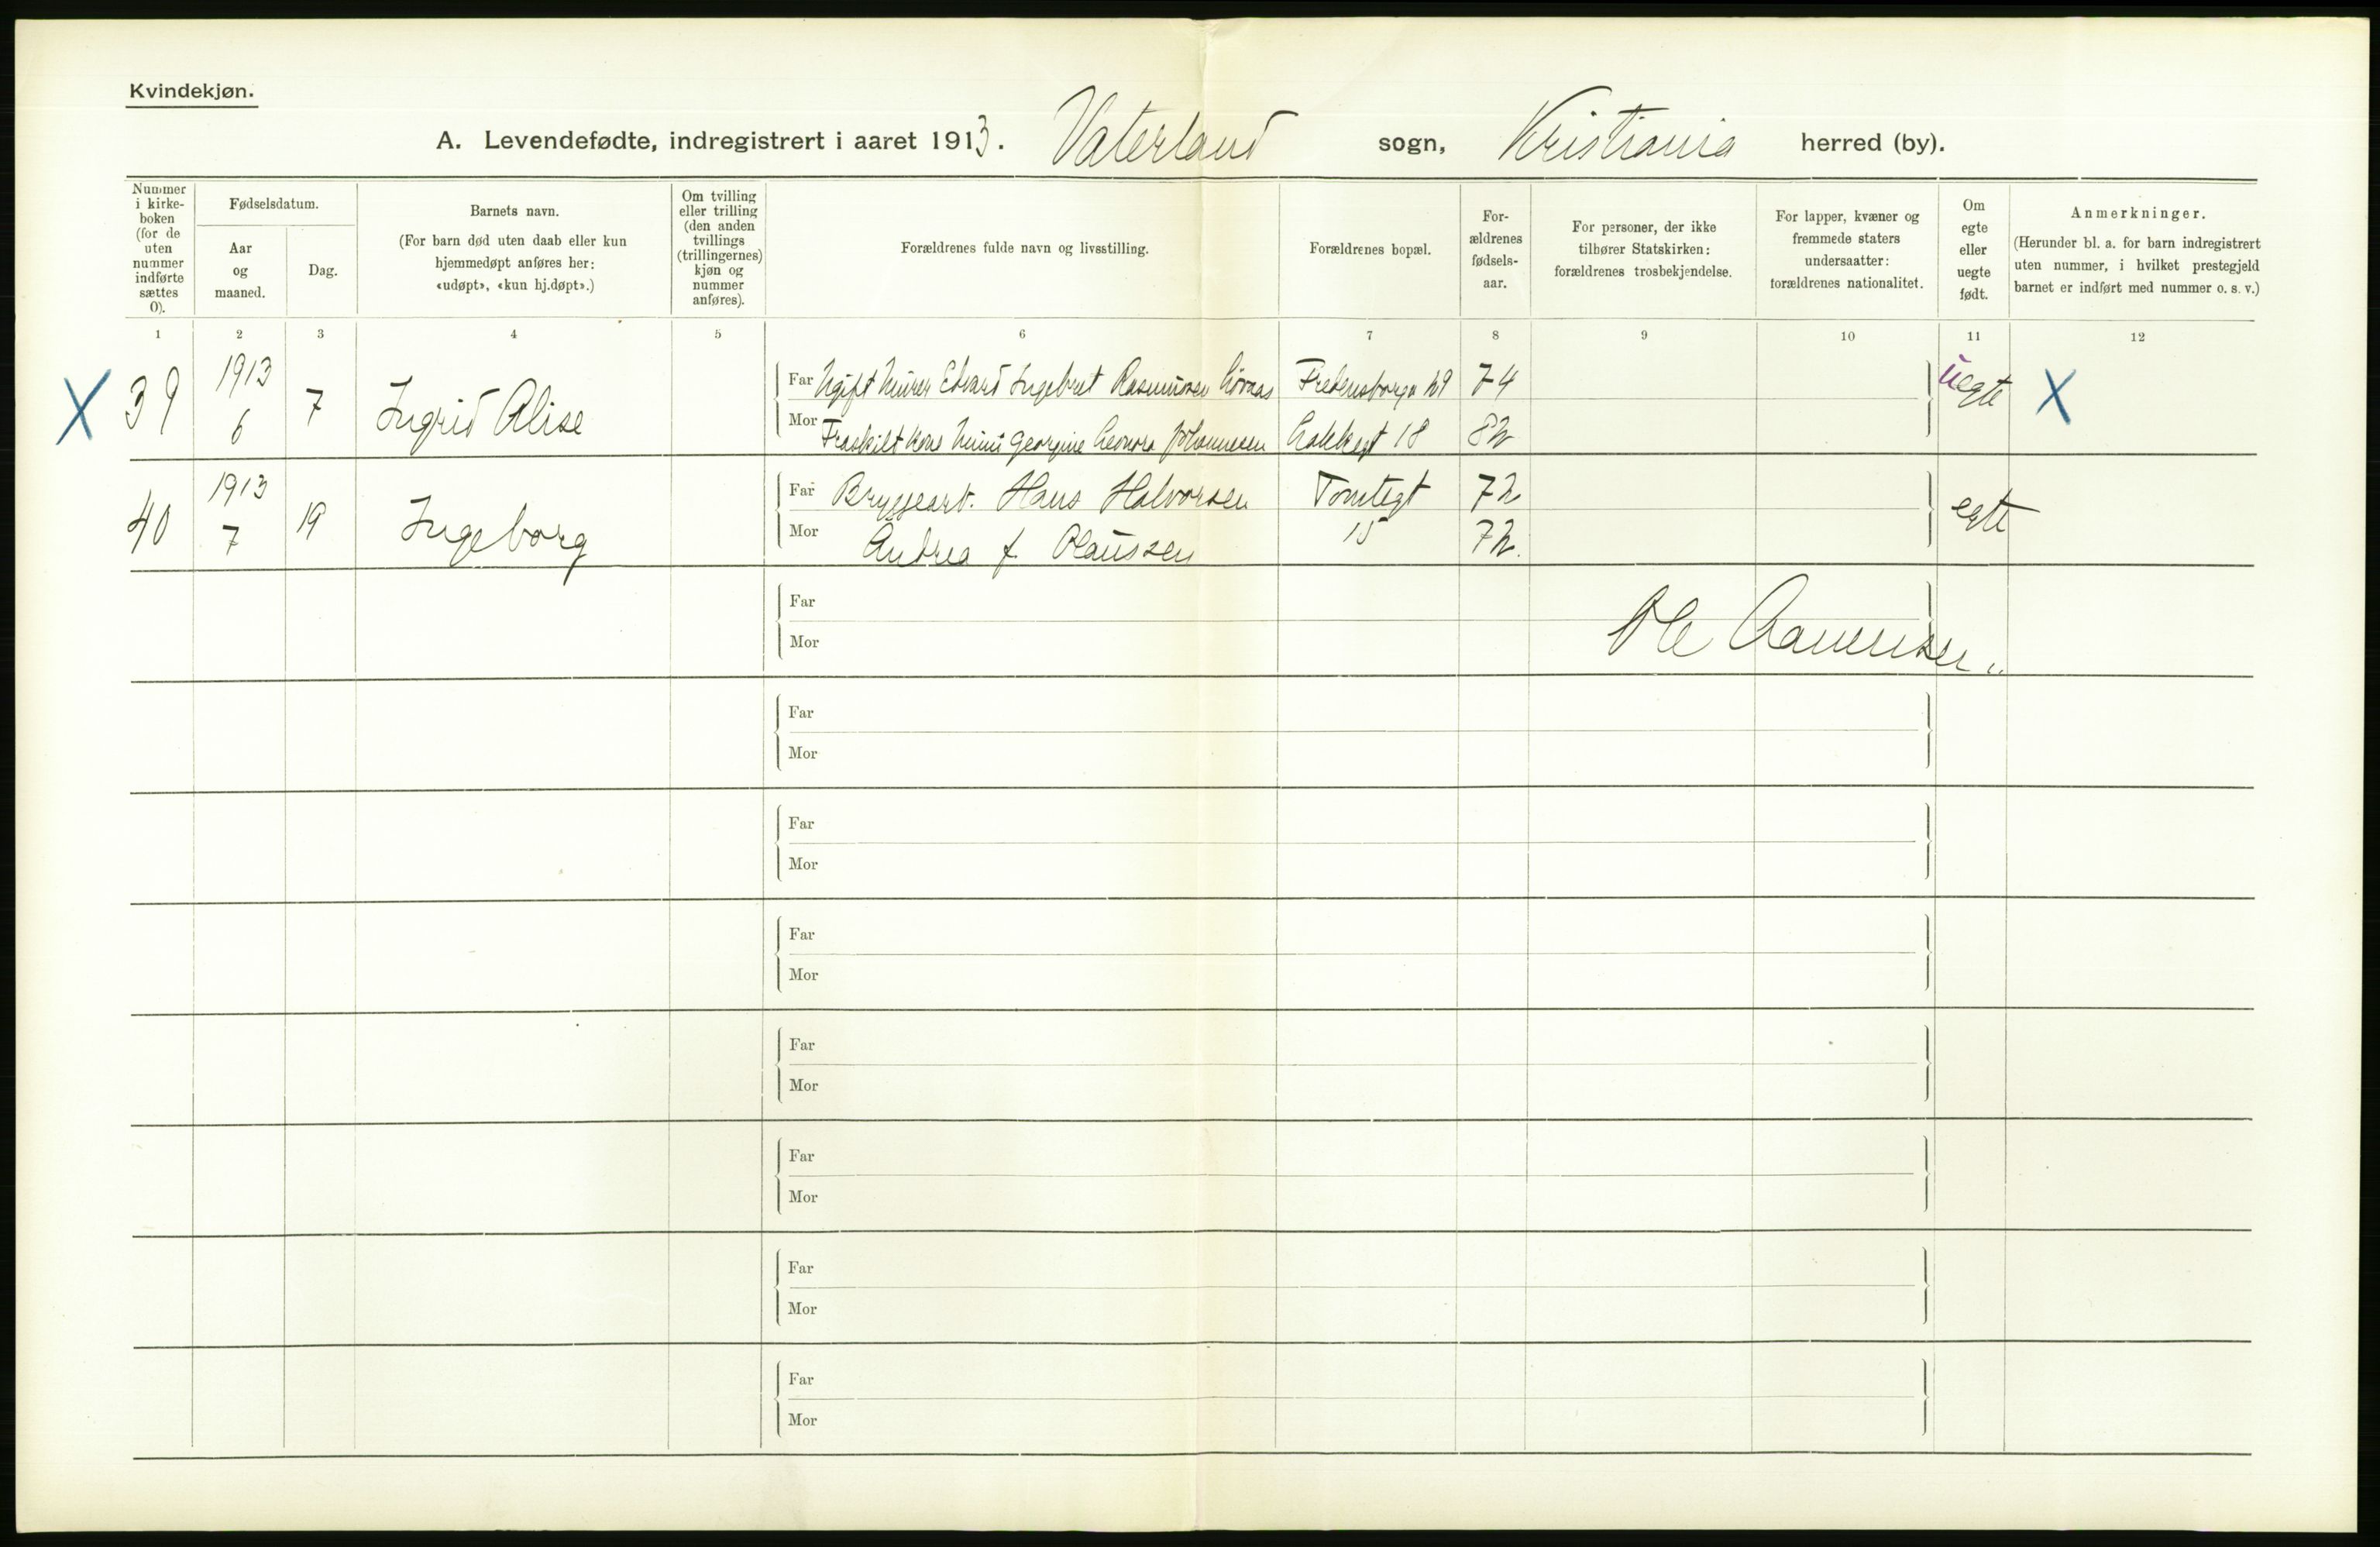 Kvindekjøn.
A. Levendefødte, indregistrert i aaret 1913. Vaterland sogn, Kristiania herred (by).
Nummer i kirke-boken (for de uten nummer indførte sættes 0).
Fødselsdatum.
Aar og maaned.
Dag.
Barnets navn.
(For barn død uten daab eller kun hjemmedøpt anføres her: «udøpt», «kun hj.døpt».)
Om tvilling eller trilling (den anden tvillings (trillingernes) kjøn og nummer anføres).
Forældrenes fulde navn og livsstilling.
Forældrenes bopæl.
For-ældrenes fødsels-aar.
For personer, der ikke tilhører Statskirken: forældrenes trosbekjendelse.
For lapper, kvæner og fremmede staters undersaatter: forældrenes nationalitet.
Om egte eller uegte født.
Anmerkninger.
(Herunder bl. a. for barn indregistrert uten nummer, i hvilket prestegjeld barnet er indført med nummer o. s. v.)
1 2 3 4 5 6 7 8 9 10 11 12
X 39 1913 6 7 Ingrid Alise
Far Ugift Murer Edvard Ingebret Rasmussen 74 uegte X
Mor Fraskilt Kone Georgine Johannesen 18 82
40 1913 7 19 Ingeborg
Far Bryggearb. Hans Halvorsen Tomtegt 72 egte
Mor Andrea f. Olaussen 15 72.
Far
Mor
Ole
Far
Mor
Far
Mor
Far
Mor
Far
Mor
Far
Mor
Far
Mor
Far
Mor